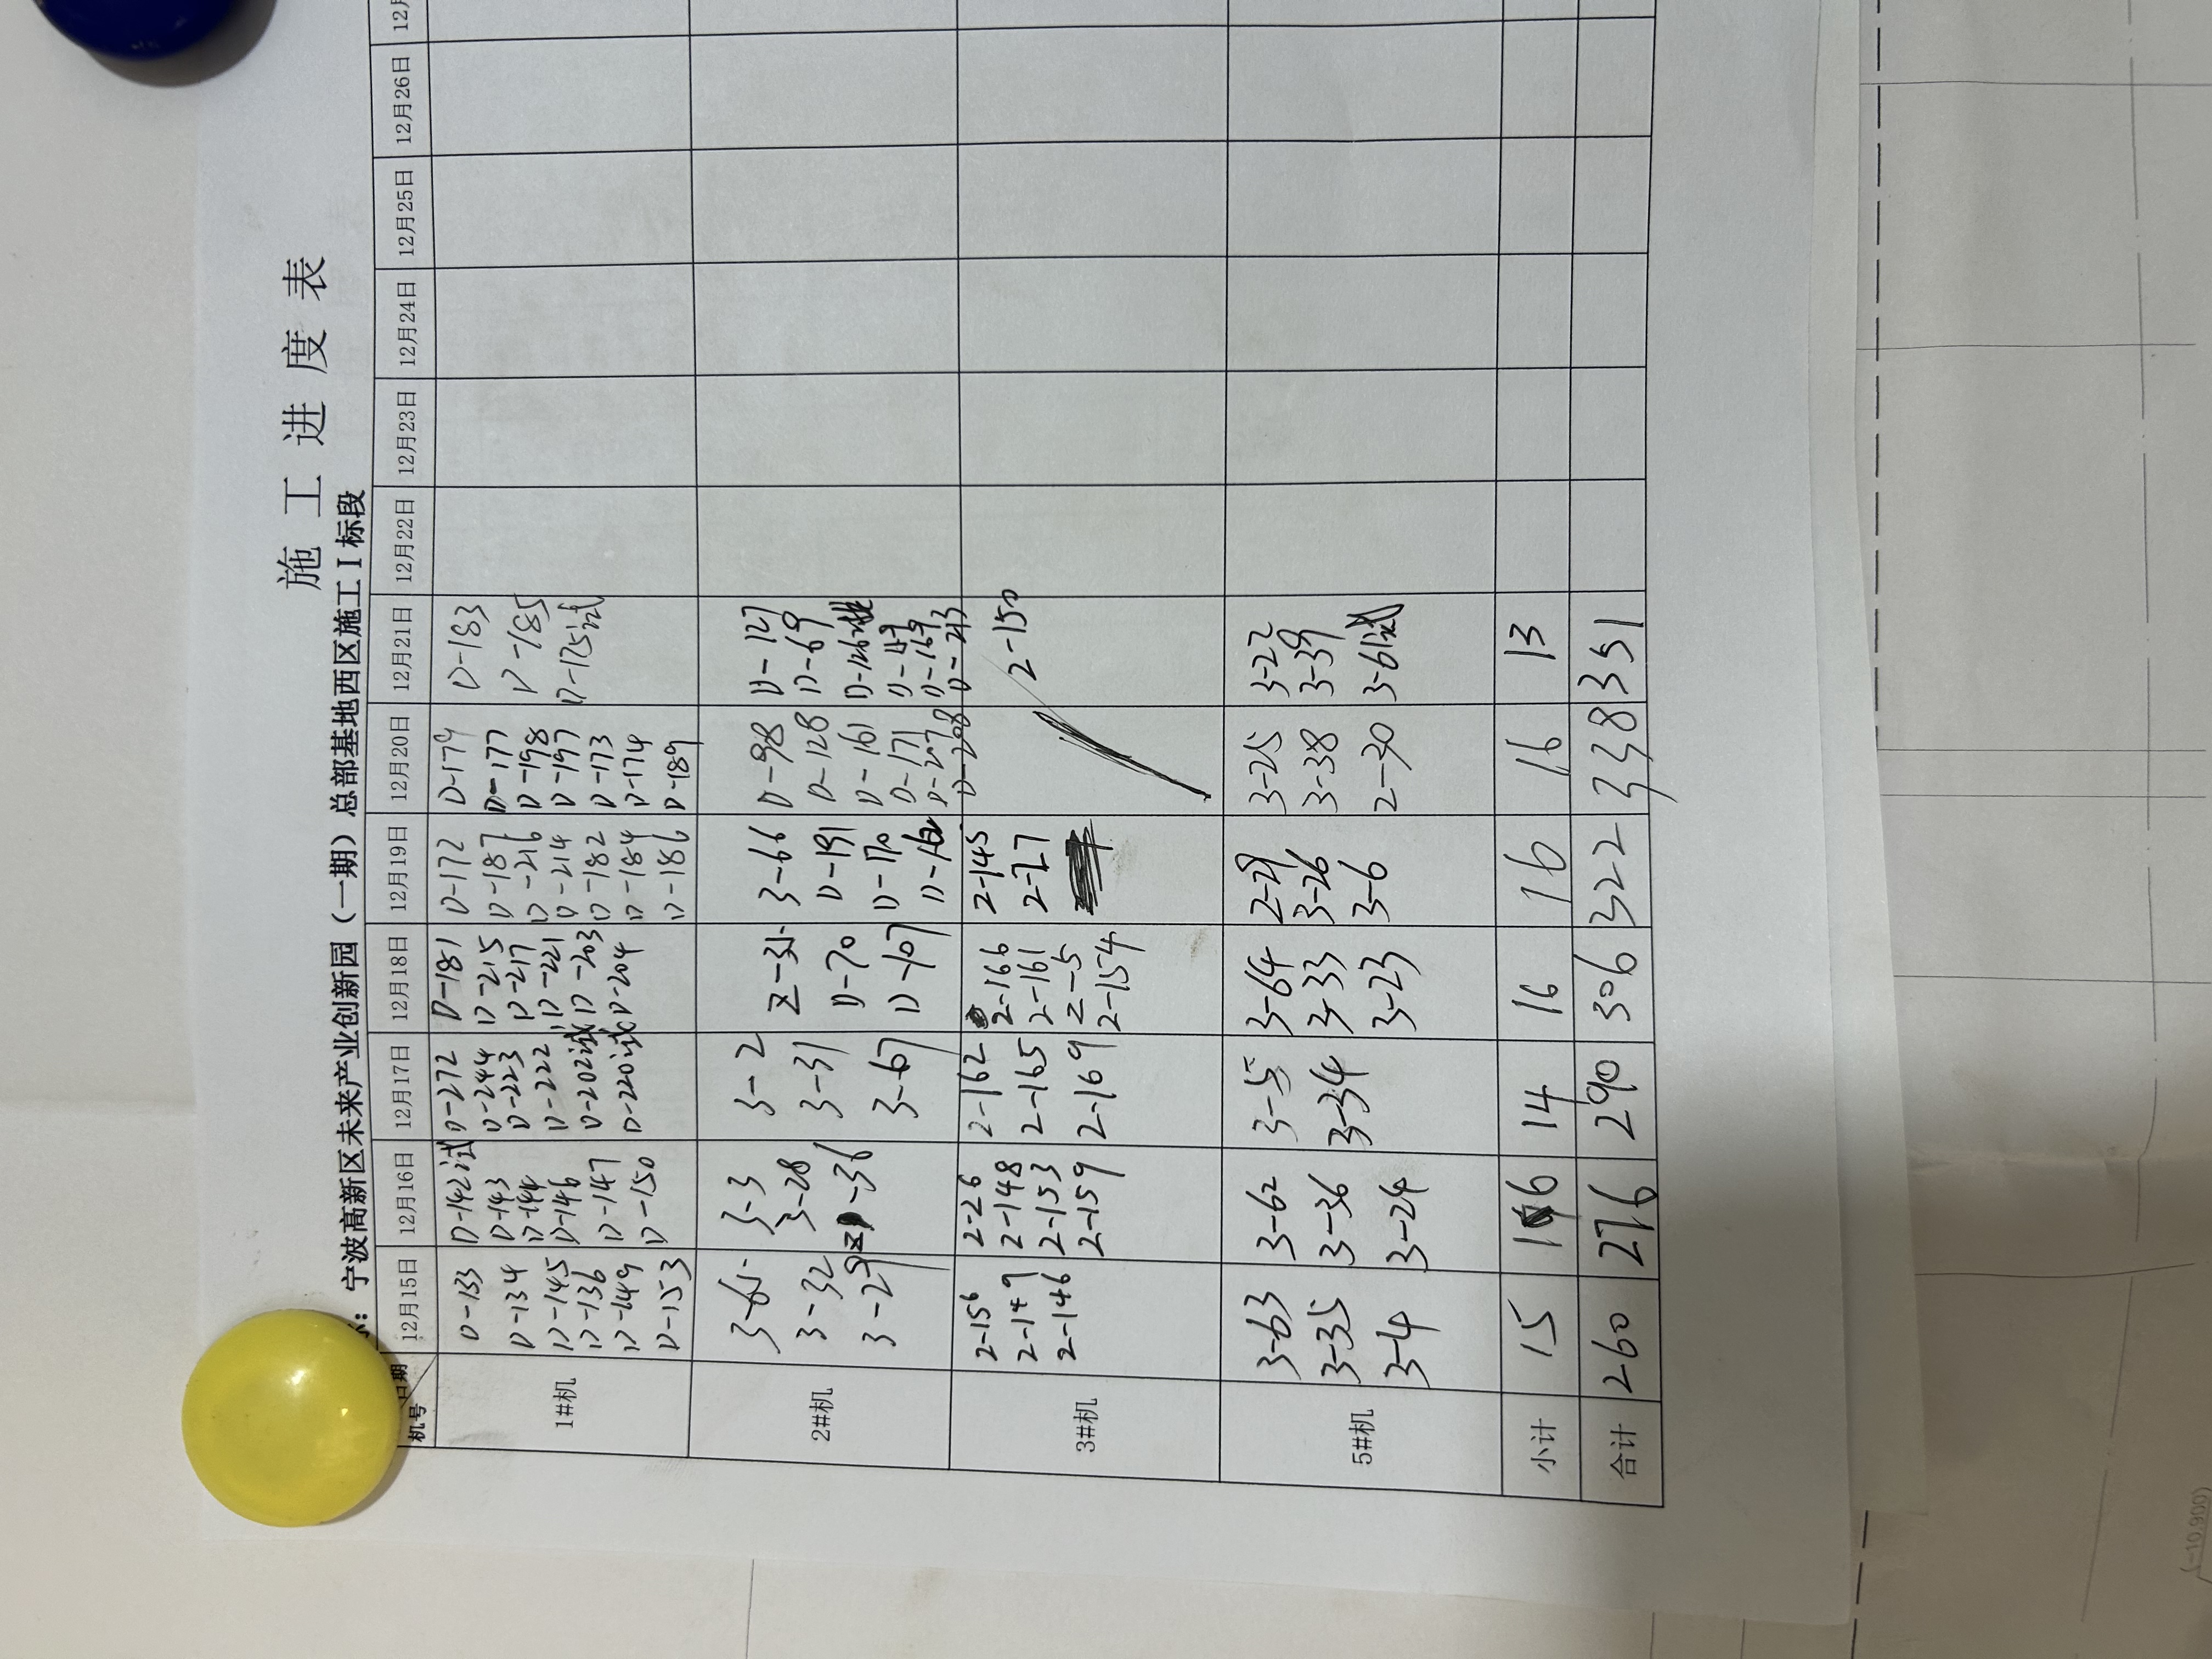 施工进度表
宁波高新区未来产业创新园（一期）总部基地西区施工Ⅰ标段
机号 日期 12月15日 12月16日 12月17日 12月18日 12月19日 12月20日 12月21日 12月22日 12月23日 12月24日 12月25日 12月26日
1#机
D-133
D-134
D-145
D-136
D-149
D-153
D-142试
D-143
D-144
D-146
D-147
D-150
D-272
D-244
D-223
D-222
D-202试
D-220试
D-181
D-215
D-217
D-221
D-203
D-204
D-172
D-187
D-216
D-214
D-182
D-184
D-186
D-179
D-177
D-198
D-197
D-173
D-174
D-189
D-183
D-185
D-175试
2#机
3-65
3-32
3-29
3-3
3-28
-36
3-2
3-31
3-67
2-31
D-70
D-107
3-66
D-191
D-170
D-98
D-128
D-161
D-171
D-127
D-69
D-169
D-213
3#机
2-156
2-149
2-146
2-26
2-148
2-153
2-159
2-162
2-165
2-169
2-166
2-161
2-5
2-154
2-145
2-27
2-150
5#机
3-63
3-35
3-4
3-62
3-36
3-24
3-5
3-34
3-64
3-33
3-23
2-29
3-26
3-6
3-25
3-38
2-30
3-22
3-39
3-61试
小计 15 16 14 16 16 16 13
合计 260 276 290 306 322 338 351